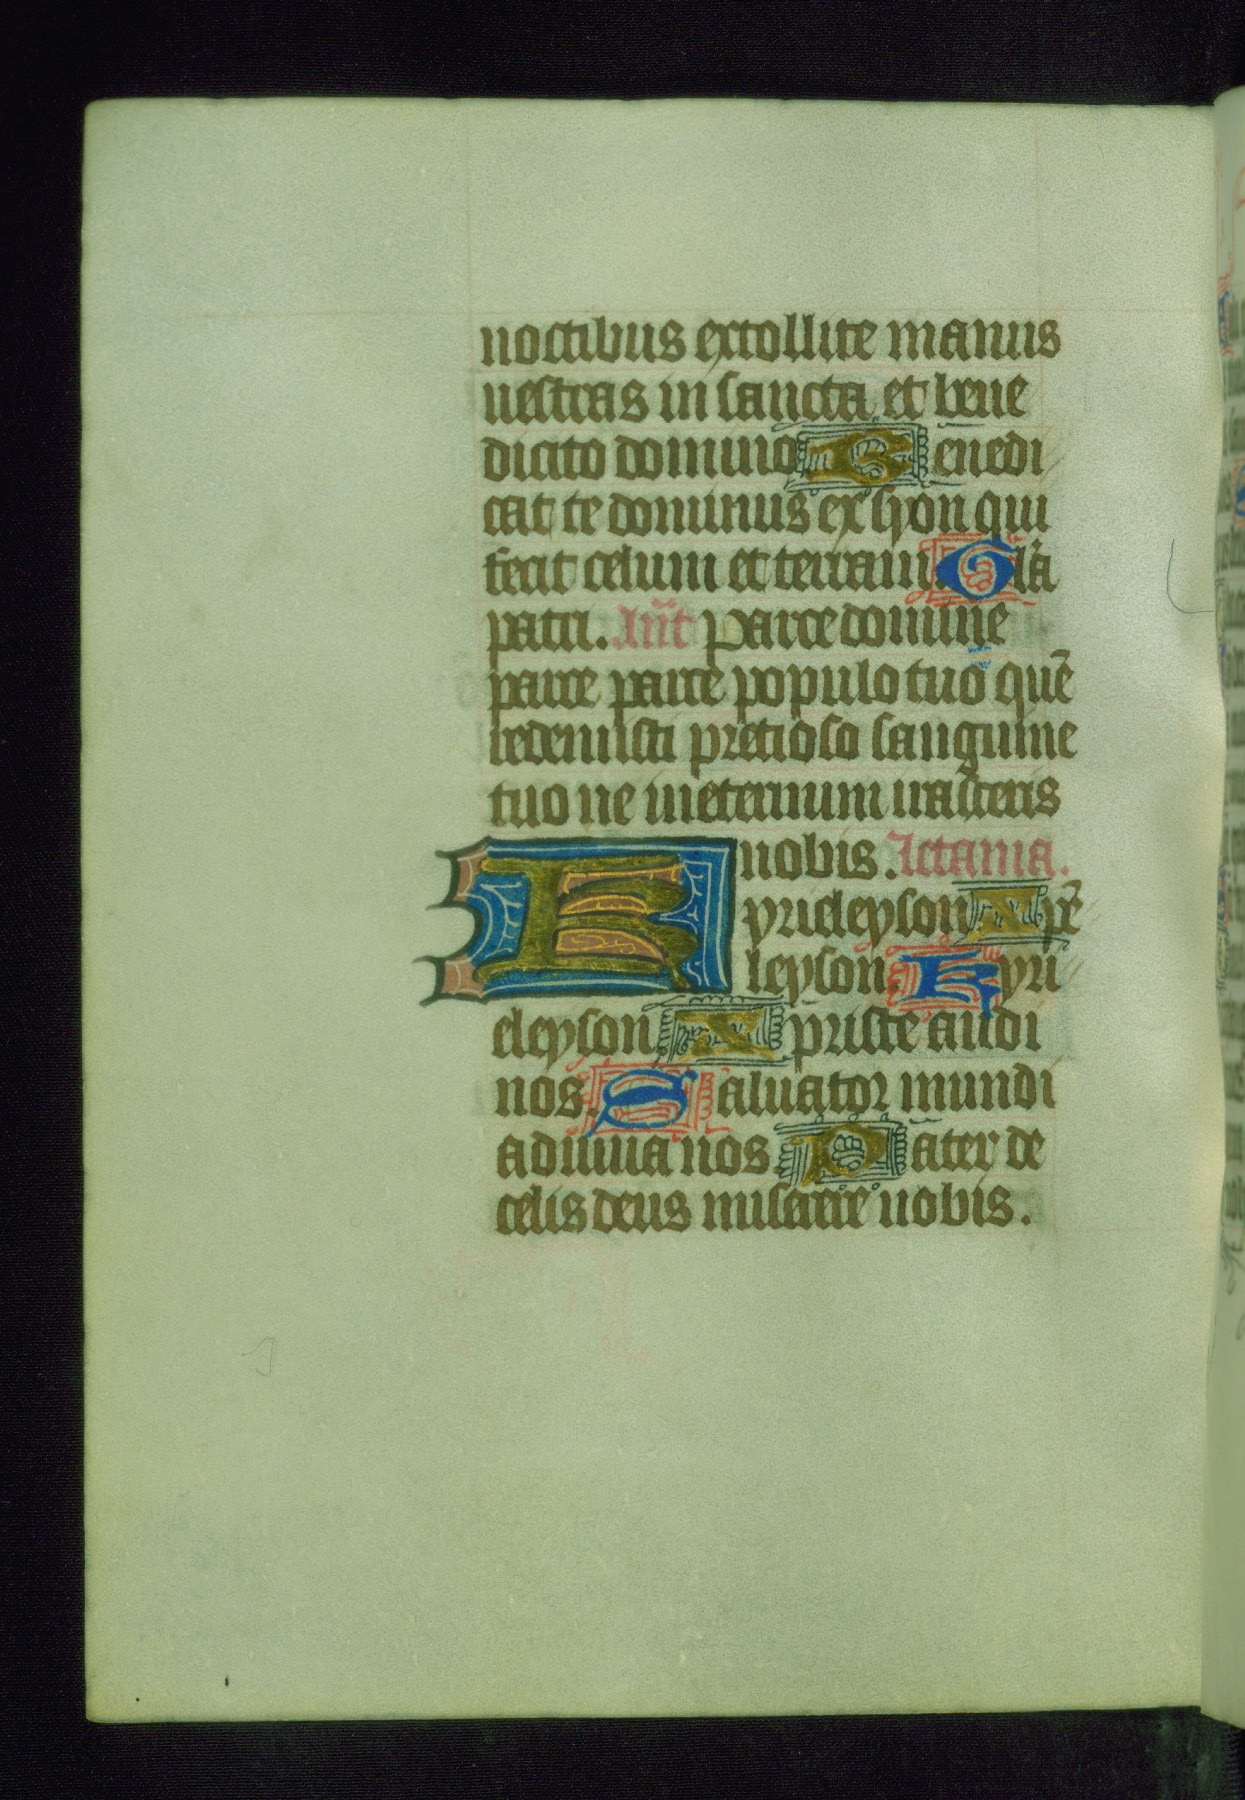 noctibus extollite manus
uestras in sancta et bene
dicito domino Benedi
cat te dominus ex syon qui
fecit celum et terram. Glã
patri. Añt parce domine
parce parce populo tuo quẽ
redemisti pretioso sanguine
tuo ne ineternum irasceris
nobis. Letania.
Kyrieleyson Xpẽ
leyson. Kyri
eleyson Xpriste audi
nos. Saluator mundi
adiuua nos Pater de
celis deus miserere nobis.